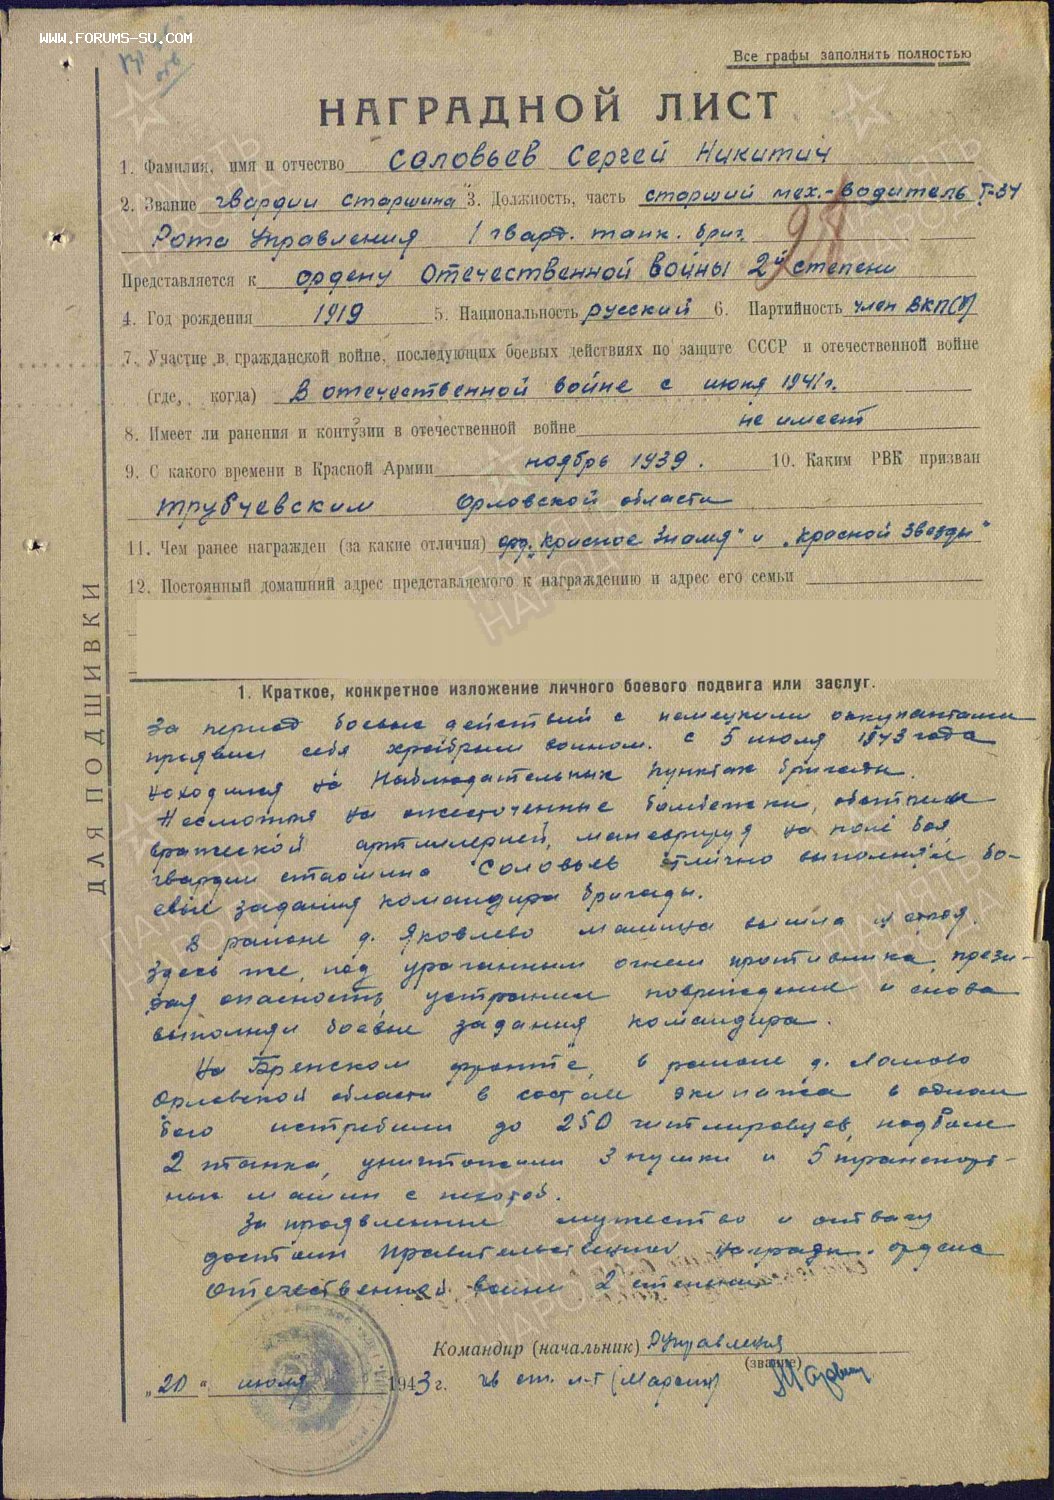 WWW.FORUMS-SU.COM
Все графы заполнять полностью
НАГРАДНОЙ ЛИСТ
1. Фамилия, имя и отчество Соловьев Сергей Никитич
2. Звание гвардии старшина 3. Должность, часть старший мех.-водитель Т-34
Рота Управления 1 гвард. танк. бриг.
Представляется к ордену Отечественной войны 2й степени
4. Год рождения 1919 5. Национальность русский 6. Партийность член ВКП(б)
7. Участие в гражданской войне, последующих боевых действиях по защите СССР и отечественной войне
(где, когда) В отечественной войне с июня 1941г.
8. Имеет ли ранения и контузии в отечественной войне не имеет
9. С какого времени в Красной Армии ноябрь 1939. 10. Каким РВК призван
Трубчевским Орловской области
11. Чем ранее награжден (за какие отличия) орд. "Красное Знамя" и "Красной Звезды"
12. Постоянный домашний адрес представляемого к награждению и адрес его семьи
ДЛЯ ПОДШИВКИ
1. Краткое, конкретное изложение личного боевого подвига или заслуг.
За период боевых действий с немецкими оккупантами
проявил себя храбрым воином. С 5 июля 1943 года
находился на Наблюдательных пунктах бригады.
Несмотря на ожесточенные бомбежки, обстрелы
вражеской артиллерией, маневрируя на поле боя
гвардии старшина Соловьев отлично выполнял бо-
евые задания командира бригады.
В районе д. Яковлево машина вышла из строя.
Здесь же, под ураганным огнем противника, прези-
рая опасность, устранил повреждения и снова
выполнял боевые задания командира.
На Брянском фронте, в районе д.
Орловской области в составе экипажа в одном
бою истребили до 250 гитлеровцев, подбили
2 танка, уничтожили 3 пушки и 5 транспорт-
ных машин с пехотой.
За проявленные мужество и отвагу
достоин правительственной награды - ордена
Отечественной войны 2 степени
Командир (начальник) Р/управления
(звание)
"20" июля 1943 г. гв ст. л-т (Марсин)
ПАМЯТЬ НАРОДА